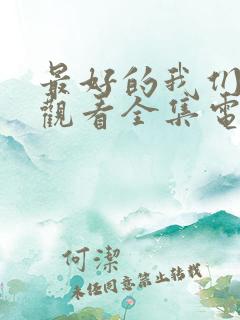 最好的我们
觀看全集電
何潔
未经同意禁止转载